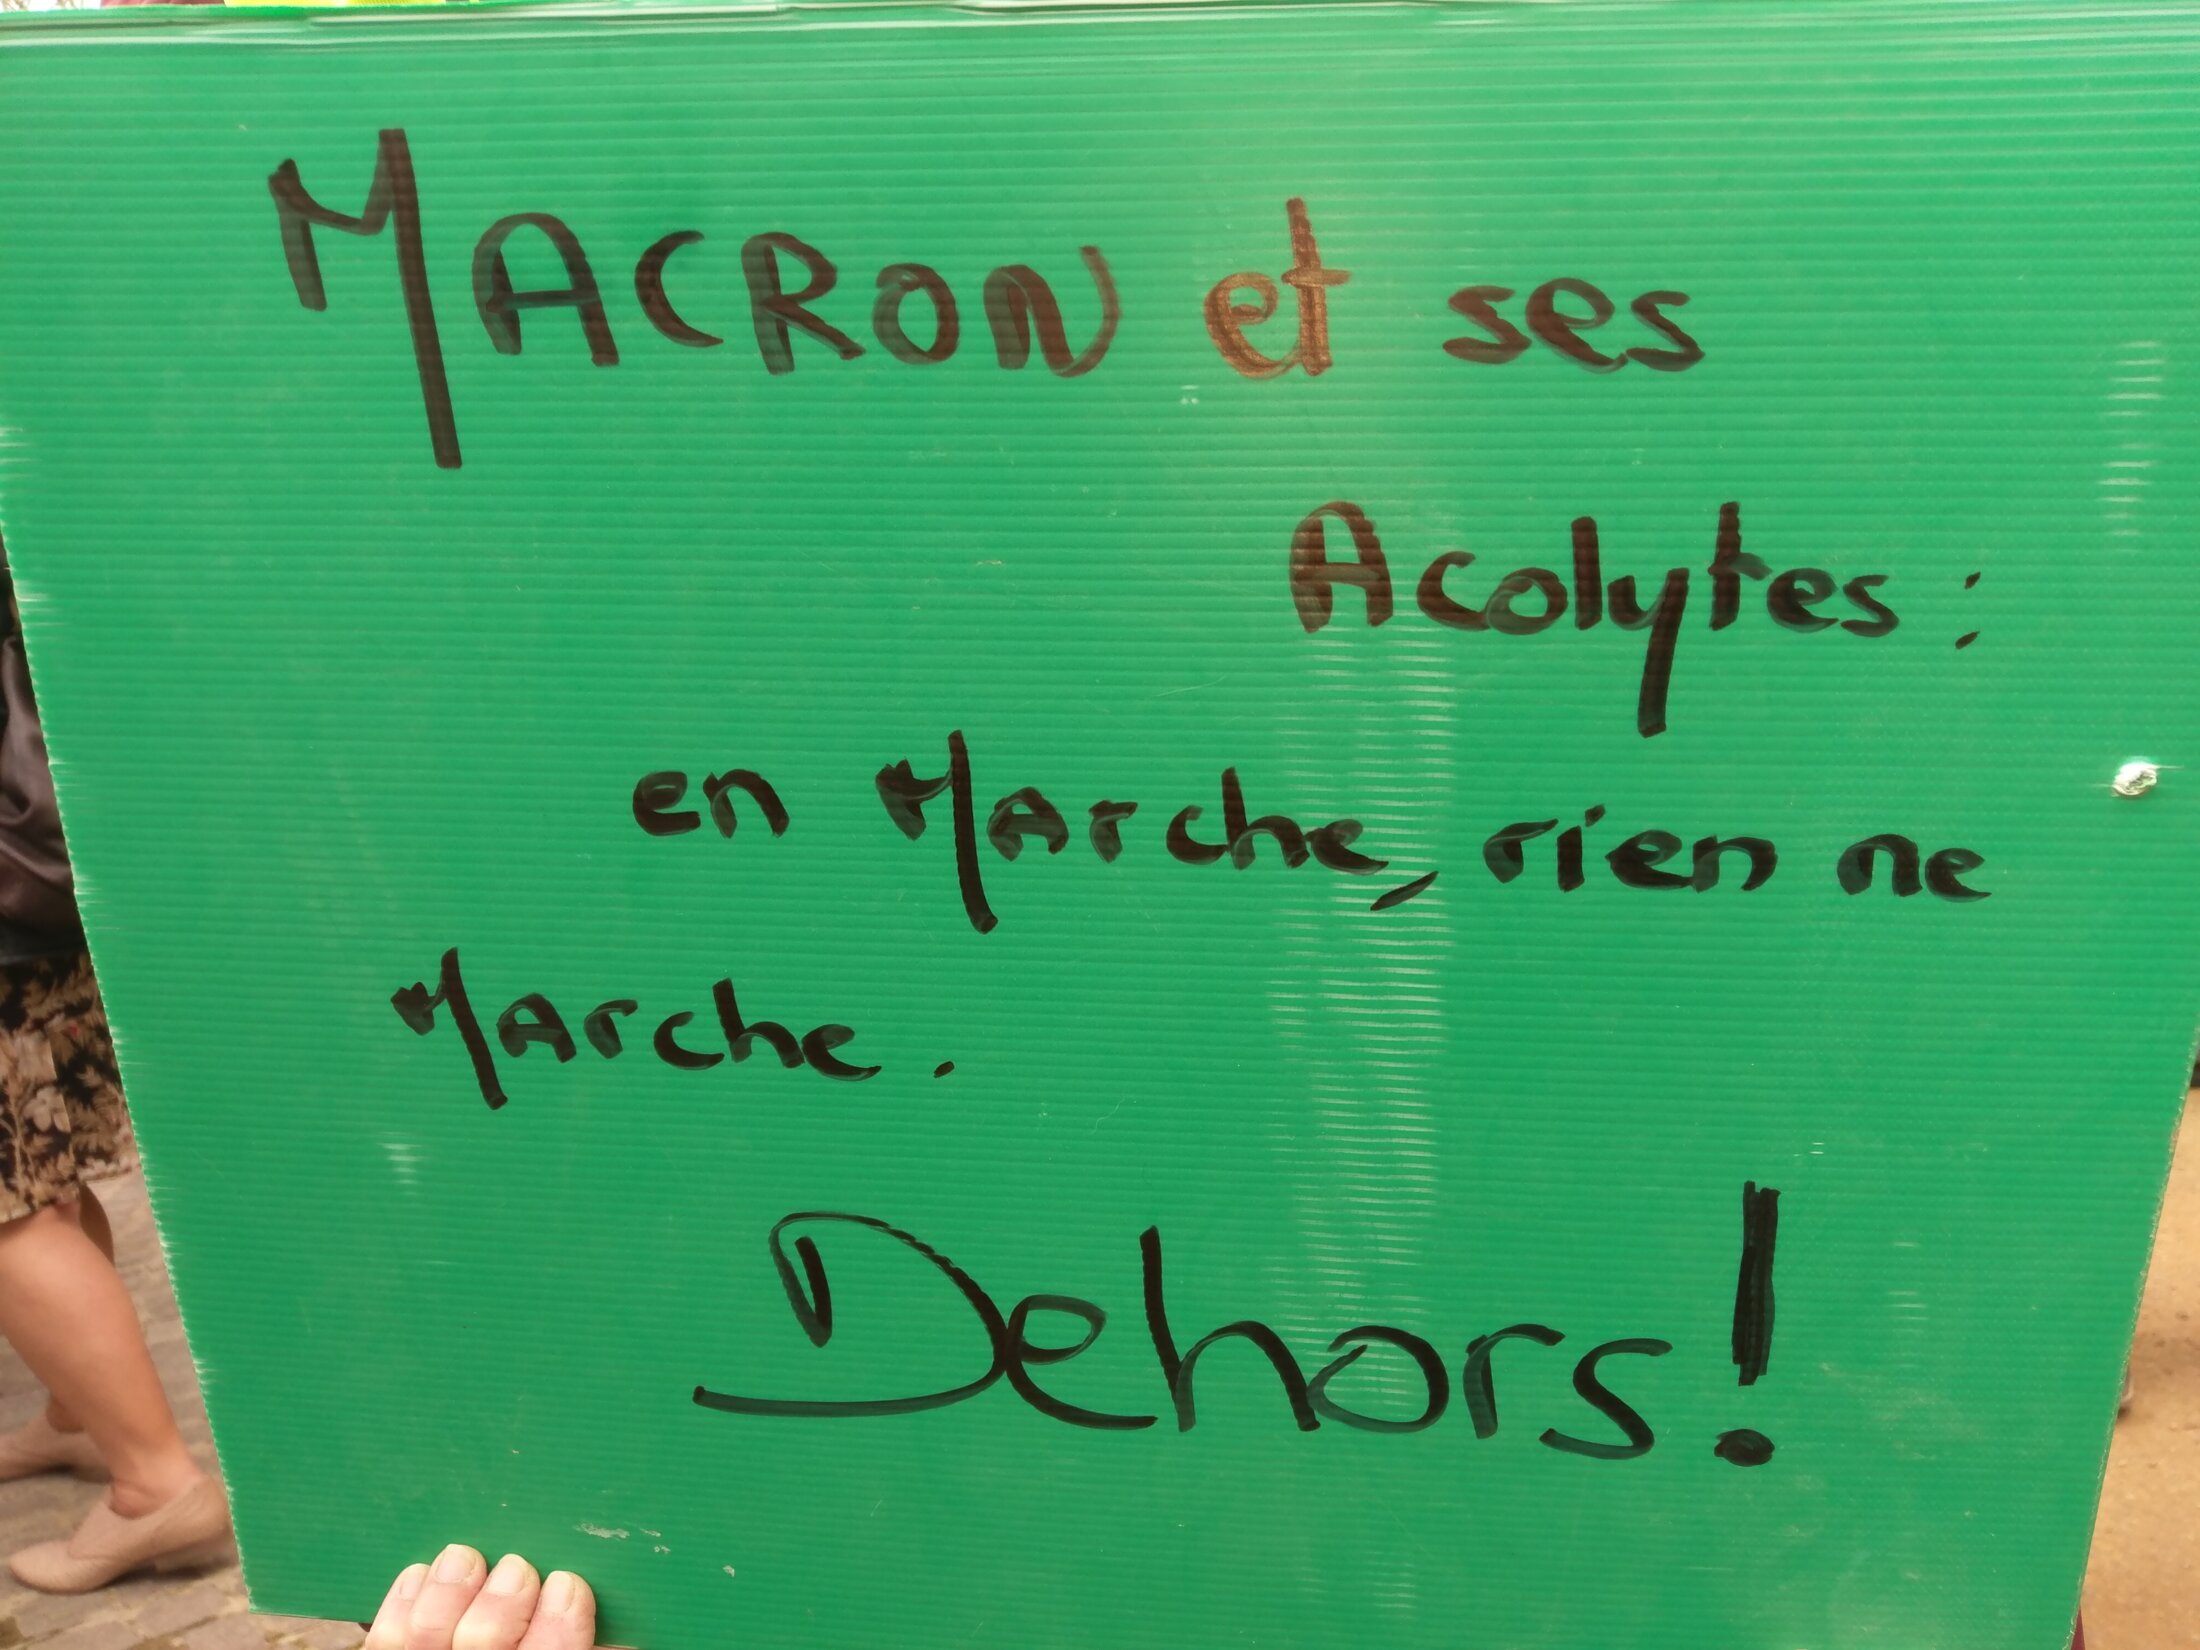 MACRON et ses
Acolytes :
en Marche, rien ne
Marche.
Dehors!